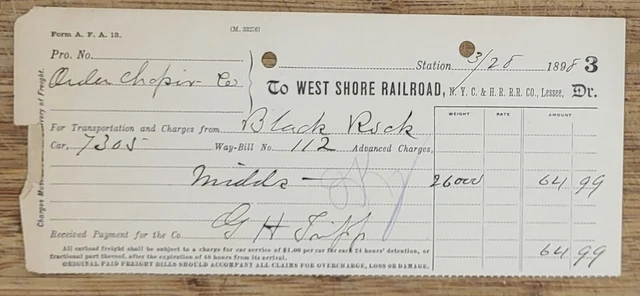 Form A. F. A. 13.
Pro. No.
Station 3/28 1898 3
Order Chapin Co
To WEST SHORE RAILROAD, N. Y. C. & H. R. R.R. CO., Lessee, Dr.
For Transportation and Charges from Black Rock
WEIGHT RATE AMOUNT
Car, 7305 Way-Bill No. 112 Advanced Charges,
Midds — 26000 64 99
Received Payment for the Co. G H Tripp
All carload freight shall be subject to a charge for car service of $1.00 per car for each 24 hours' detention, or
fractional part thereof, after the expiration of 48 hours from its arrival.
64 99
ORIGINAL PAID FREIGHT BILLS SHOULD ACCOMPANY ALL CLAIMS FOR OVERCHARGE, LOSS OR DAMAGE.
Charges Must
very of Freight.